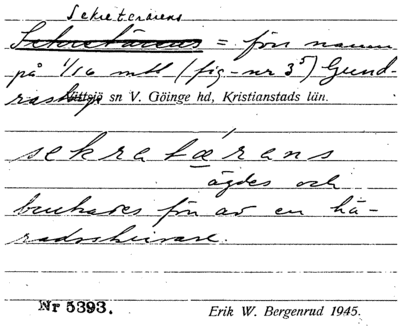 Sekreterarens
Sekretärens = förr namn
på 1/16 mtl (fig-nr 35) Gund-
rastorp Vittsjö sn V. Göinge hd, Kristianstads län.
sekratǽrans
ägdes och
brukades förr av en hä-
radsskrivare.
Nr 5393.
Erik W. Bergenrud 1945.